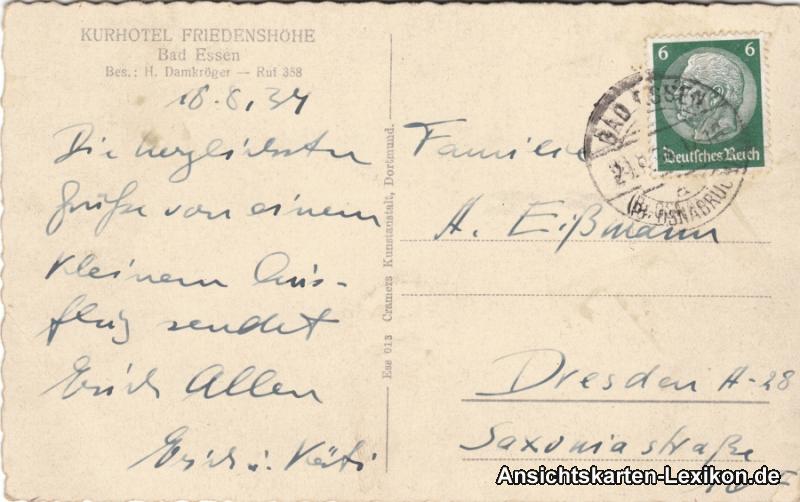 KURHOTEL FRIEDENSHÖHE
Bad Essen
Bes.: H. Damkröger — Ruf 358
18.8.34
Die herzlichsten
Grüße von einem
kleinem Aus-
flug sendet
Erich Allen
Erich u. Käti
Ess 013 Cramers Kunstanstalt, Dortmund.
6 6
Deutsches Reich
BAD ESSEN
(BZ. OSNABRÜCK)
a
Familie
A. Eißmann
Dresden A-28
Saxoniastraße
Ansichtskarten-Lexikon.de